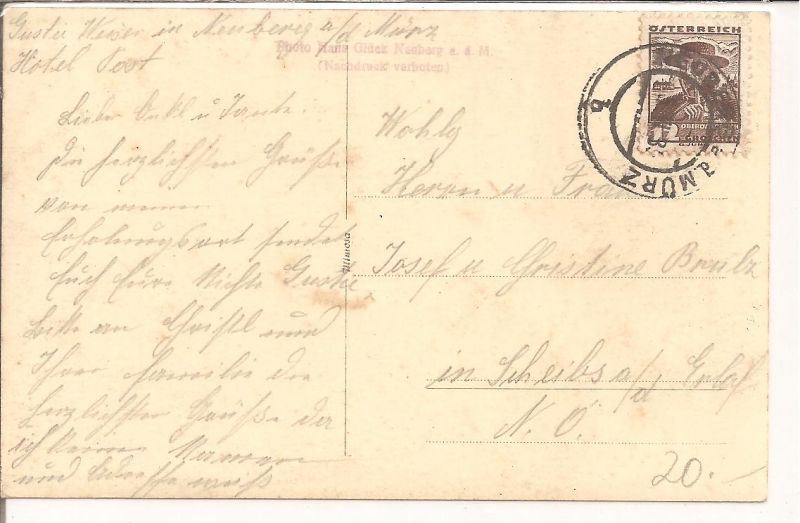 Gustie Weiser in Neuberg a/d Mürz
Hotel Post
Photo Hans Glück Neuberg a. d. M.
(Nachdruck verboten)
Liebe Onkl u Tante.
Die herzlichsten Grüße
von meinen
Erholungsort sendet
Euch Eure Nichte Gustie
Bitte an Christl und
Ihrer Familie die
herzlichsten Grüße da
ich keinen Namen
und Adresse weiß
Mimosa
ÖSTERREICH
a.d. MÜRZ
Wohlg
Herrn u Frau
Josef u Christine
in Scheibs a/d Erlaf
N. Ö.
20.-